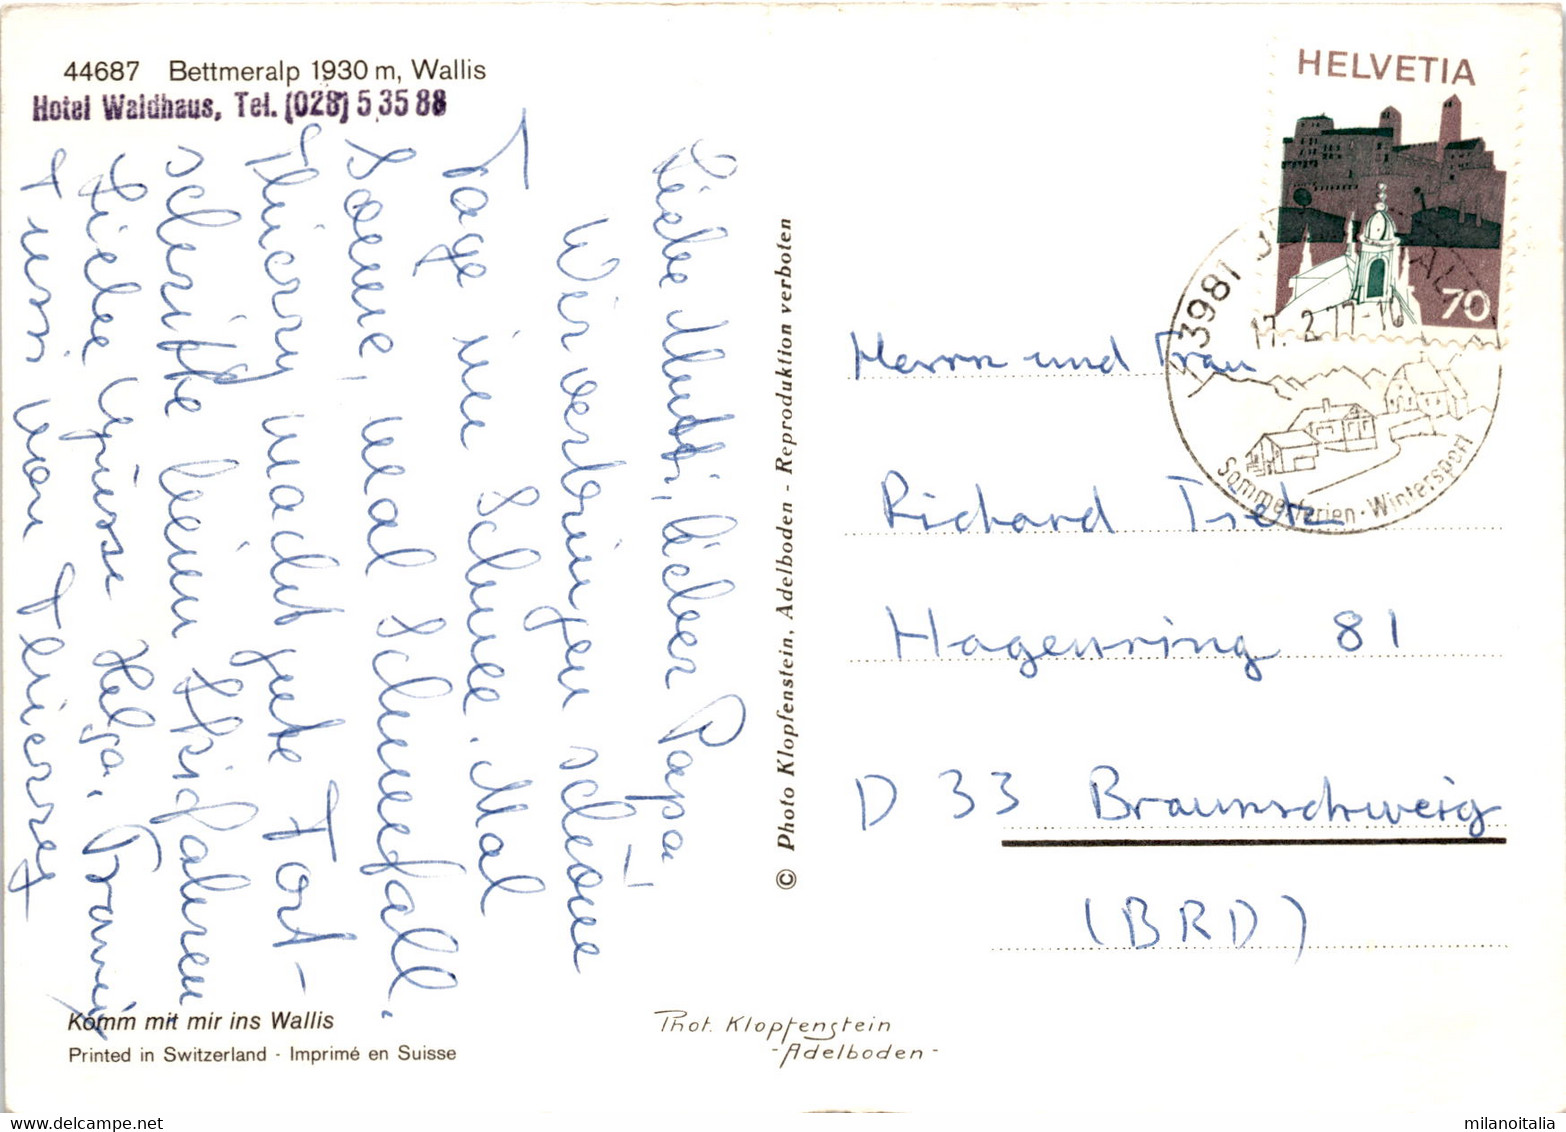 44687 Bettmeralp 1930 m, Wallis
Hotel Waldhaus, Tel. (028) 5 35 88
Liebe Mutti, lieber Papa
Wir verbringen schöne
Tage im Schnee. Mal
Sonne, mal Schneefall.
Thierry macht gute Fort-
schritte beim Skifahren
Liebe Grüsse Helga,
+ Kussi von Thierry
Komm mit mir ins Wallis
Printed in Switzerland - Imprimé en Suisse
© Photo Klopfenstein, Adelboden - Reproduktion verboten
Phot. Klopfenstein
- Adelboden -
HELVETIA
70
3981
17. 2. 77-10
Sommerferien - Wintersport
Herrn und Frau
Richard Tietz
Hagenring 81
D 33 Braunschweig
(BRD)
milanoitalia